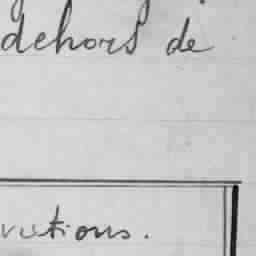 dehors de
vations.